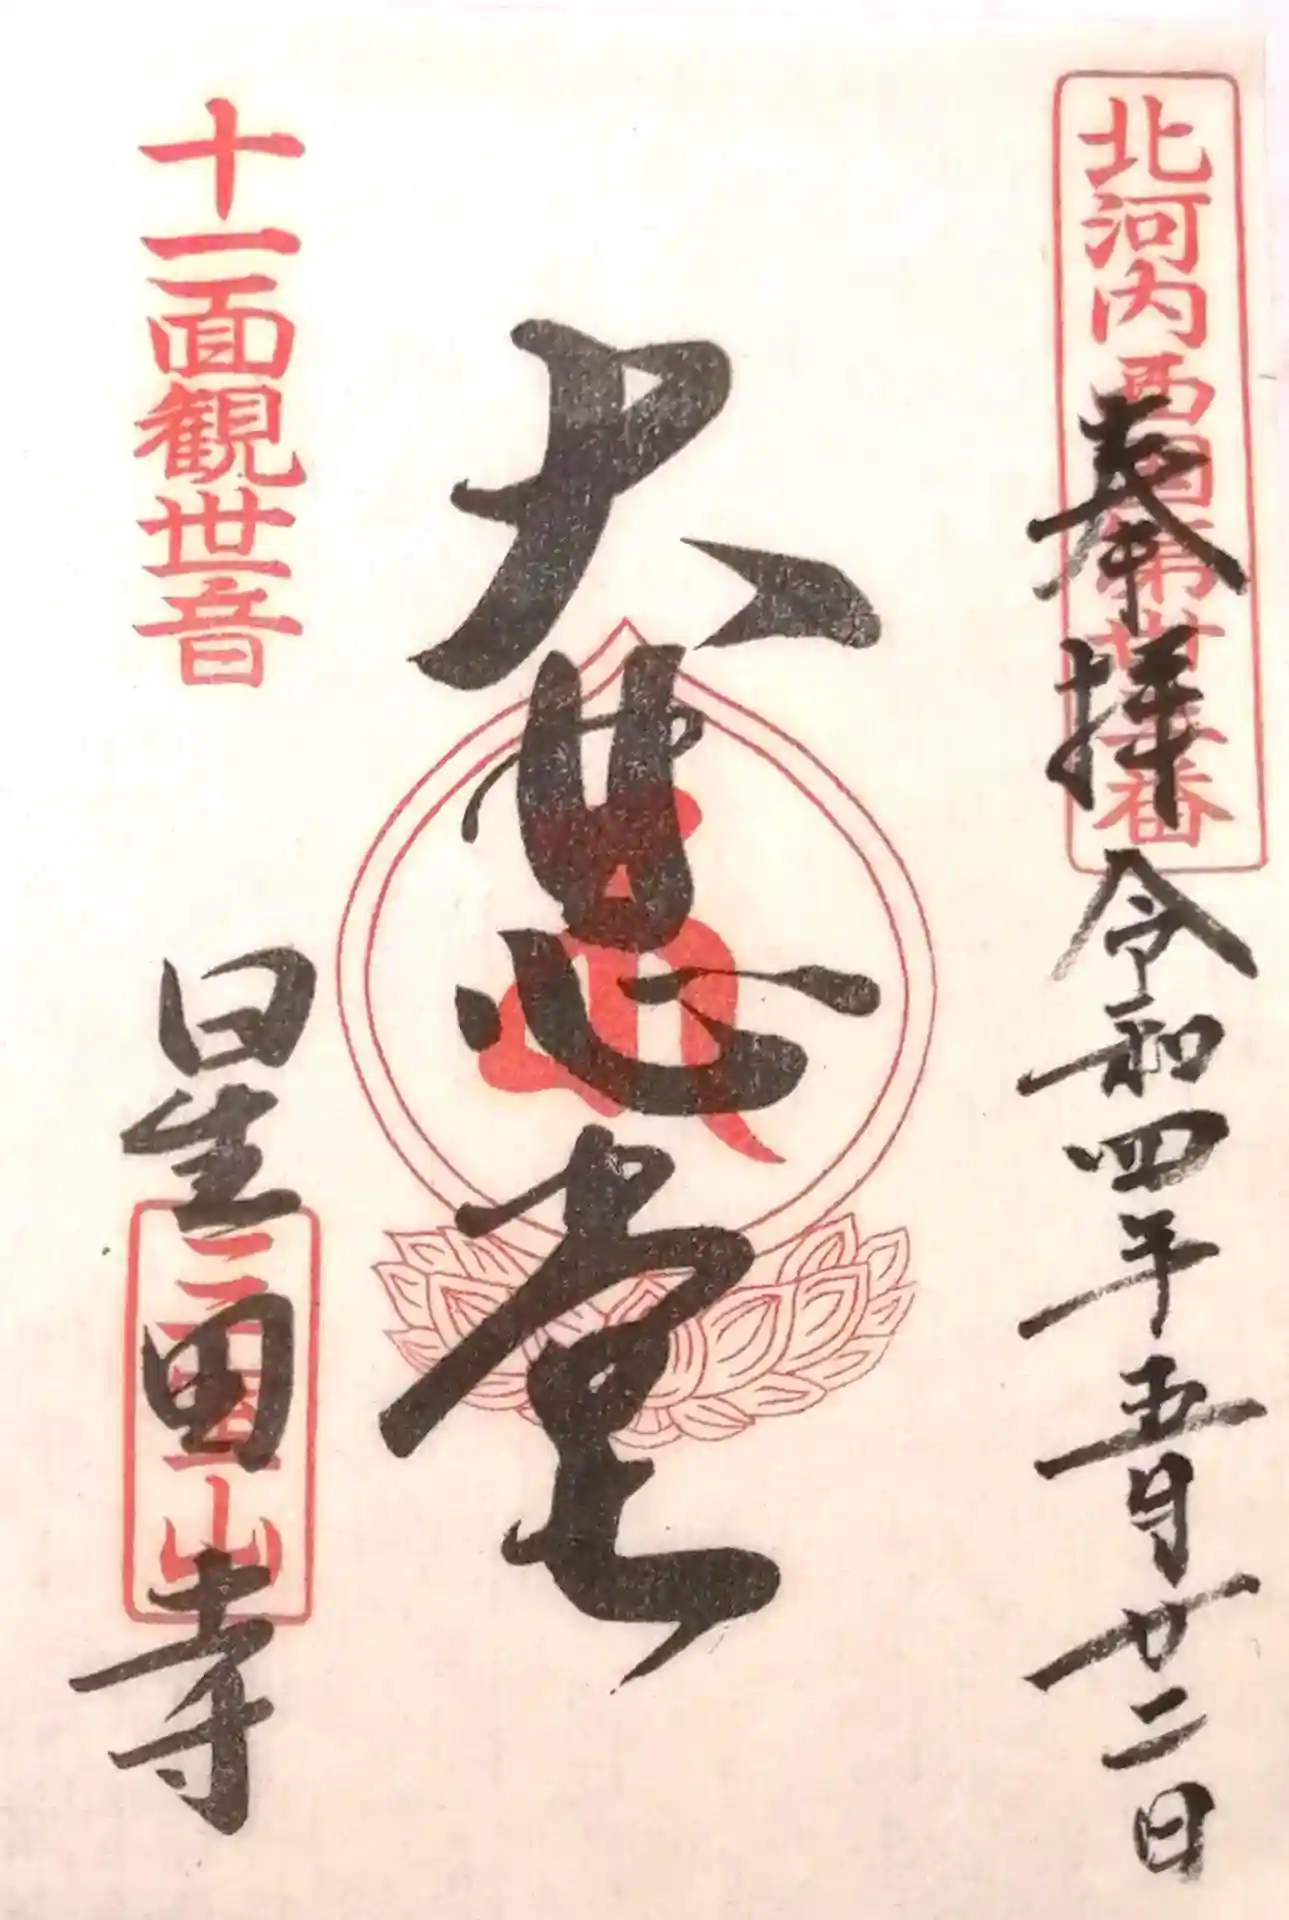 北河内西国第 番
奉拝 令和四年五月廿二日
大悲堂
十一面観世音
星田寺
山